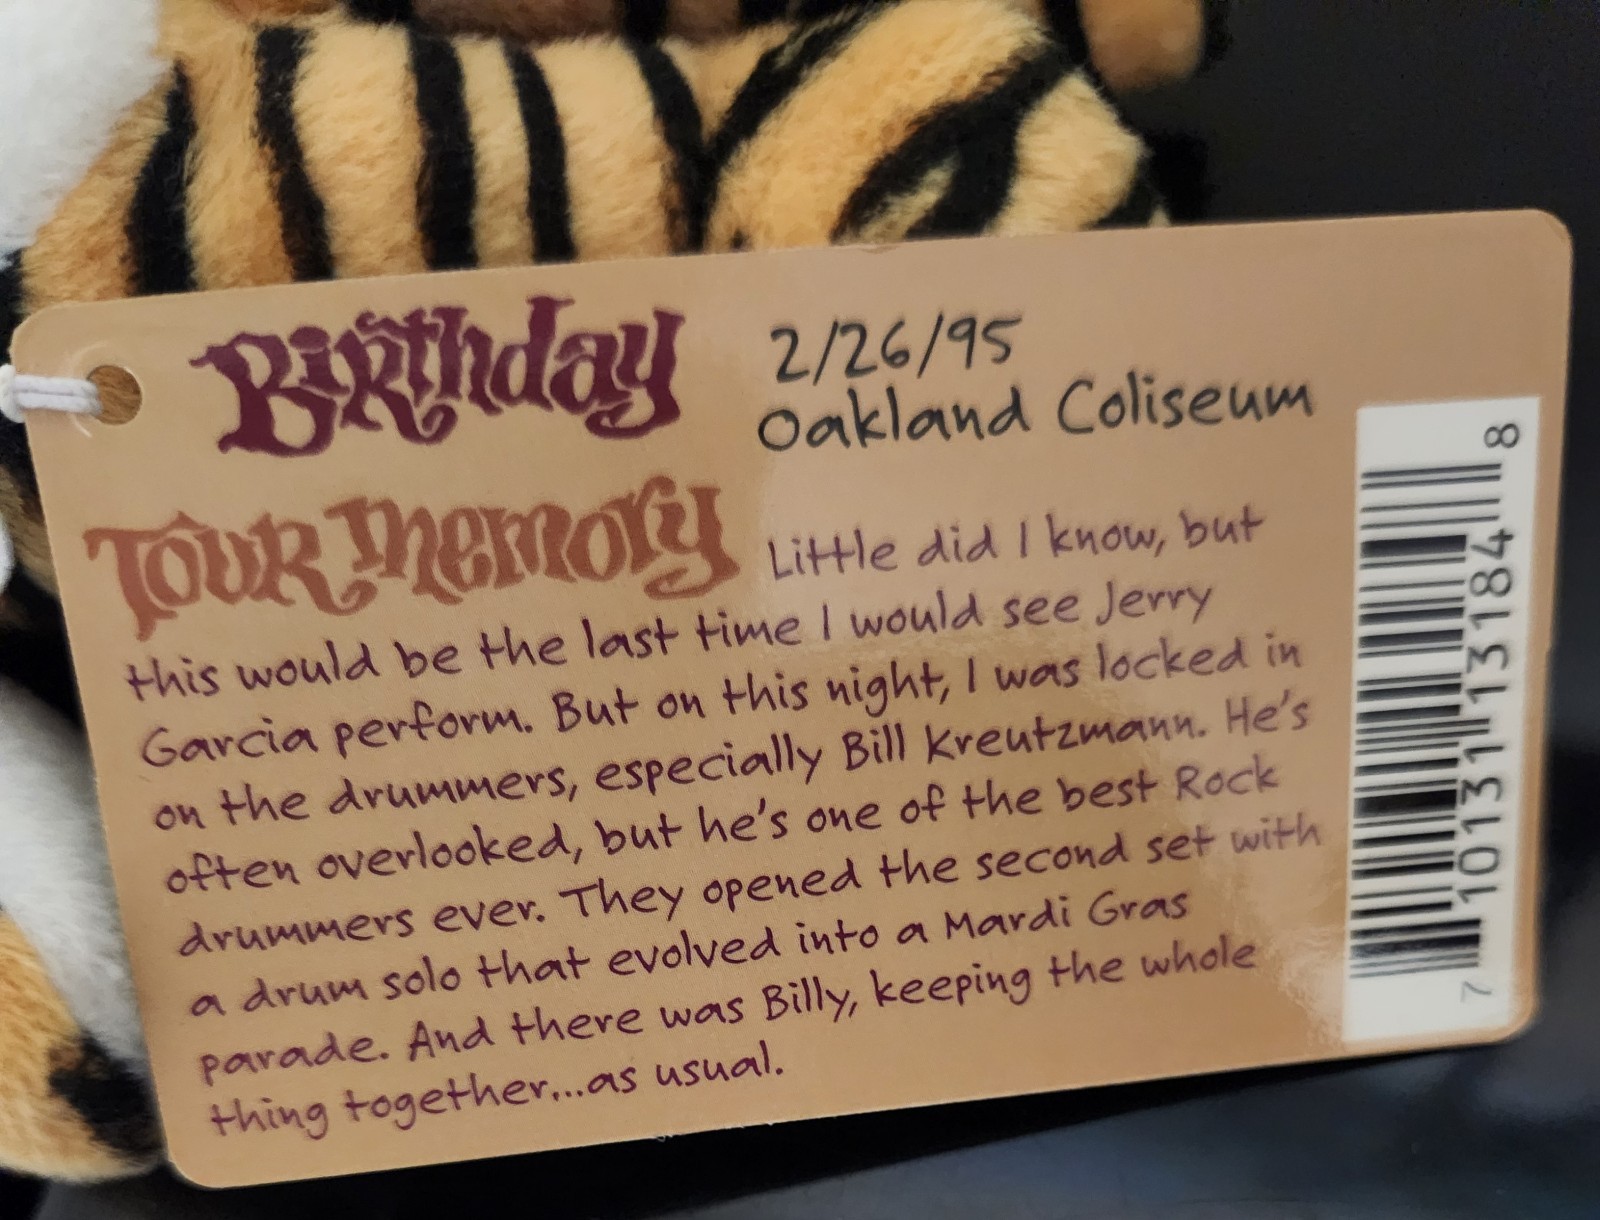 Birthday 2/26/95
Oakland Coliseum
Tour Memory Little did I know, but
this would be the last time I would see Jerry
Garcia perform. But on this night, I was locked in
on the drummers, especially Bill Kreutzmann. He's
often overlooked, but he's one of the best Rock
drummers ever. They opened the second set with
a drum solo that evolved into a Mardi Gras
parade. And there was Billy, keeping the whole
thing together...as usual.
7 10131 13184 8